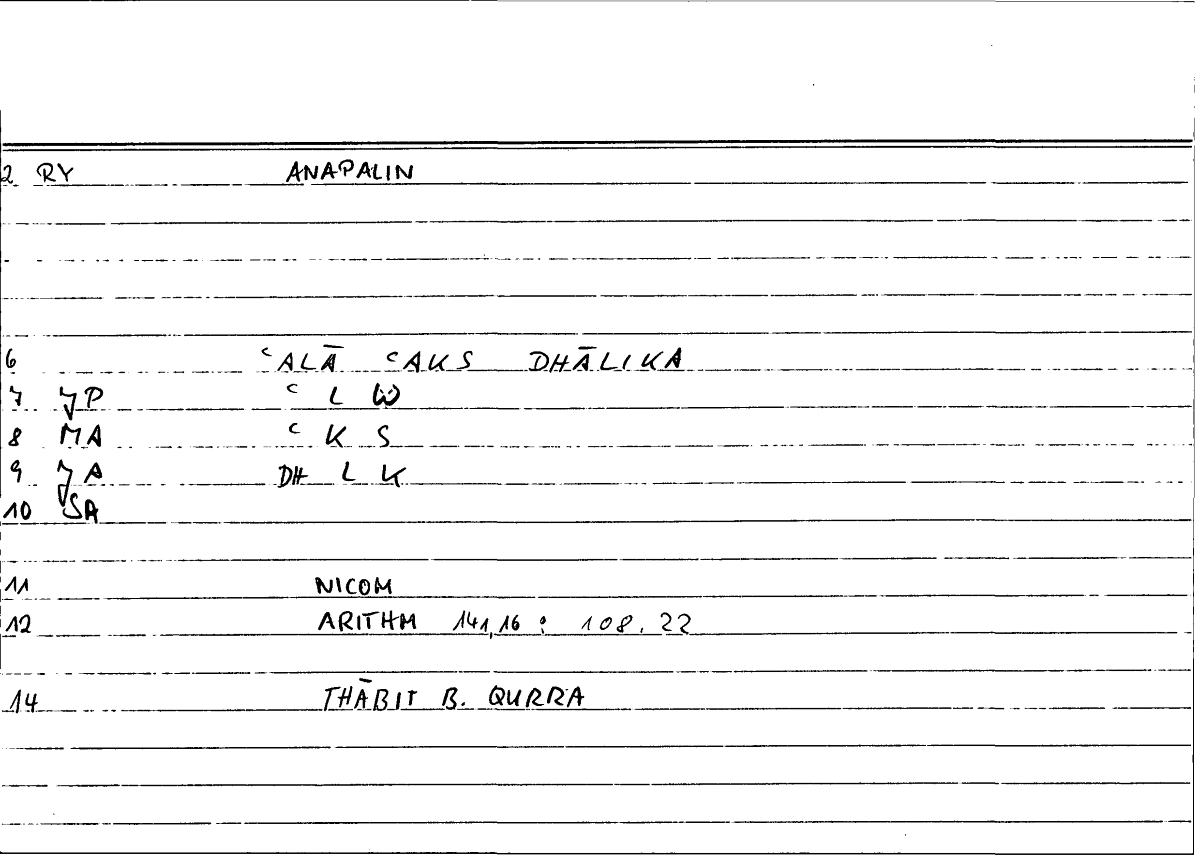 2 RY ANAPALIN
6 ʿALĀ ʿAKS DHĀLIKA
7 JP ʿ L W
8 MA ʿ K S
9 JA DH L K
10 SA
11 NICOM
12 ARITHM 141,16 : 108.22
14 THĀBIT B. QURRA